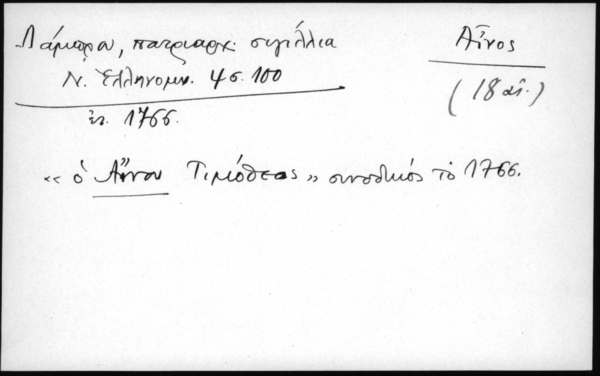 Λάμπρου, πατριαρχ. σιγίλλια
Αἶνος
Ν. Ἑλληνομν. 4 σ. 100
(18 αἰ.)
ἐτ. 1766.
« ὁ Αἴνου Τιμόθεος » συνοδικός τὸ 1766.